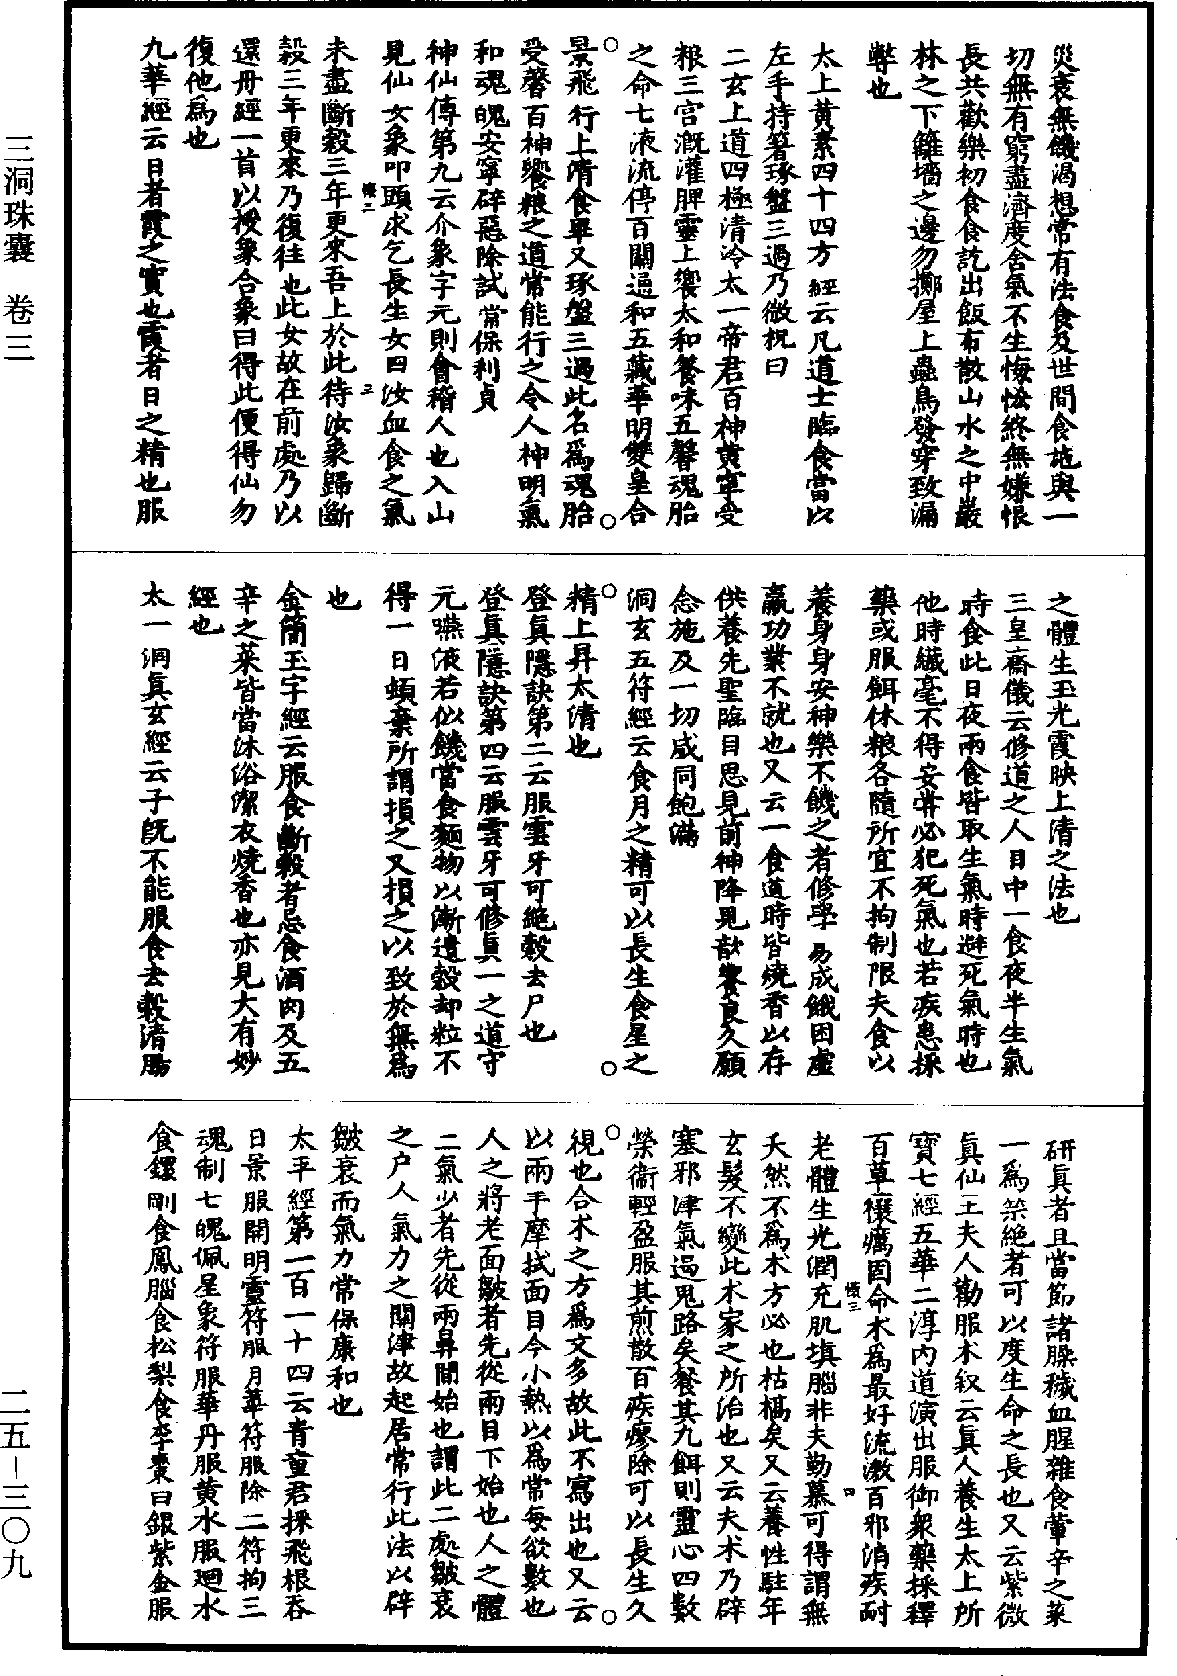 災衰無饑渴想常有法食及世間食施與一
切無有窮盡濟度含氣不生悔恡終無嫌恨
長共歡樂初食食訖出飯布散山水之中巖
林之下籬墻之邊勿擲屋上蟲鳥發穿致漏
弊也
太上黃素四十四方經云凡道士臨食當以
左手持箸琢盤三過乃微祝曰
二玄上道四極清泠太一帝君百神黃寧受
粮三宮溉灌脾靈上饗太和餐味五馨魂胎
之命七液流停百關通和五藏華明雙皇合
景飛行上清食畢又琢盤三過此名爲魂胎
受馨百神饗粮之道常能行之令人神明氣
和魂魄安寧辟惡除試當保利貞
神仙傳第九云介象字元則會稽人也入山
見仙女象叩頭求乞長生女曰汝血食之氣
未盡斷穀三年更來吾上於此待汝象歸斷
穀三年更來乃復往也此女故在前處乃以
還丹經一首以授象合象曰得此便得仙勿
復他爲也
九華經云日者霞之實也霞者日之精也服
之體生玉光霞映上清之法也
三皇齋儀云修道之人日中一食夜半生氣
時食此日夜兩食皆取生氣時避死氣時也
他時纖毫不得妄甞必犯死氣也若疾患採
藥或服餌休粮各隨所宜不拘制限夫食以
養身身安神樂不饑之者修學易成餓困虛
羸功業不就也又云一食道時皆燒香以存
供養先聖臨目思見前神降見歆饗良久願
念施及一切咸同飽滿
洞玄五符經云食月之精可以長生食星之
精上昇太清也
登真隱訣第二云服雲牙可絕穀去尸也
登真隱訣第四云服雲牙可修真一之道守
元嚥液若似饑當食麵物以漸遣穀却粒不
得一日頓棄所謂損之又損之以致於無爲
也
金簡玉字經云服食斷穀者忌食酒肉及五
辛之菜皆當沐浴潔衣燒香也亦見大有妙
經也
太一洞真玄經云子旣不能服食去穀清腸
研真者且當節諸臊穢血腥雜食葷辛之菜
一爲禁絕者可以度生命之長也又云紫微
真仙王夫人勸服术叙云真人養生太上所
寶七經五華二淳内道演出服御衆藥採釋
百草禳癘固命术爲最好流激百邪消疾耐
老體生光潤充肌填腦非夫勤慕可得謂無
夭然不爲术方必也枯槁矣又云養性駐年
玄髮不變此术家之所治也又云夫术乃辟
塞邪津氣遏鬼路矣餐其丸餌則靈心四敷
榮衛輕盈服其煎散百疾瘳除可以長生久
視也合术之方爲文多故此不寫出也又云
以兩手摩拭面目令小熱以爲常每欲數也
人之將老面皺者先從兩目下始也人之體
二氣少者先從兩鼻間始也謂此二處皺衰
之户人氣力之關津故起居常行此法以辟
皺衰而氣力常保康和也
太平經第一百一十四云青童君採飛根吞
日景服開明靈符服月華符服除二符拘三
魂制七魄佩星象符服華丹服黃水服廻水
食鐶剛食鳳腦食松梨食李棗白銀紫金服
三洞珠囊　卷三
二五－三〇九
懷三
三
懷三
四